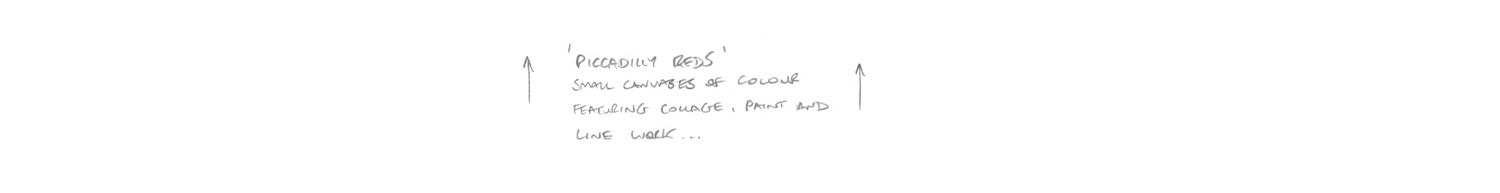 'PICCADILLY REDS'
SMALL CANVASES OF COLOUR
FEATURING COLLAGE, PAINT AND
LINE WORK...